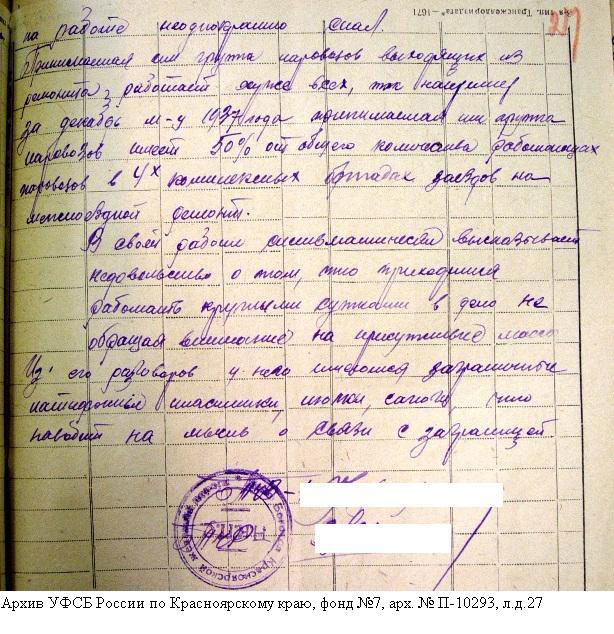 тип. Трансжелдориздата" —1671
27
на работе неоднократно спал.
Принимаемая им группа паровозов выходящих из
ремонта, работает хуже всех, так например
за декабрь м-ц 1937 года принимаемая им группа
паровозов имеет 50% от общего количества работающих
паровозов в 4х комплексных бригадах заездов на
межпоездной ремонт.
В своей работе высказывает
недовольство о том, что приходится
работать круглыми сутками в депо не
обращая внимание на присутствие массы
Из его разговоров у него имеются заграничные
патефонные пластинки, сапоги, что
наводит на мысль о связи с заграницей.
Красноярской
Архив УФСБ России по Красноярскому краю, фонд №7, арх. № П-10293, л.д.27